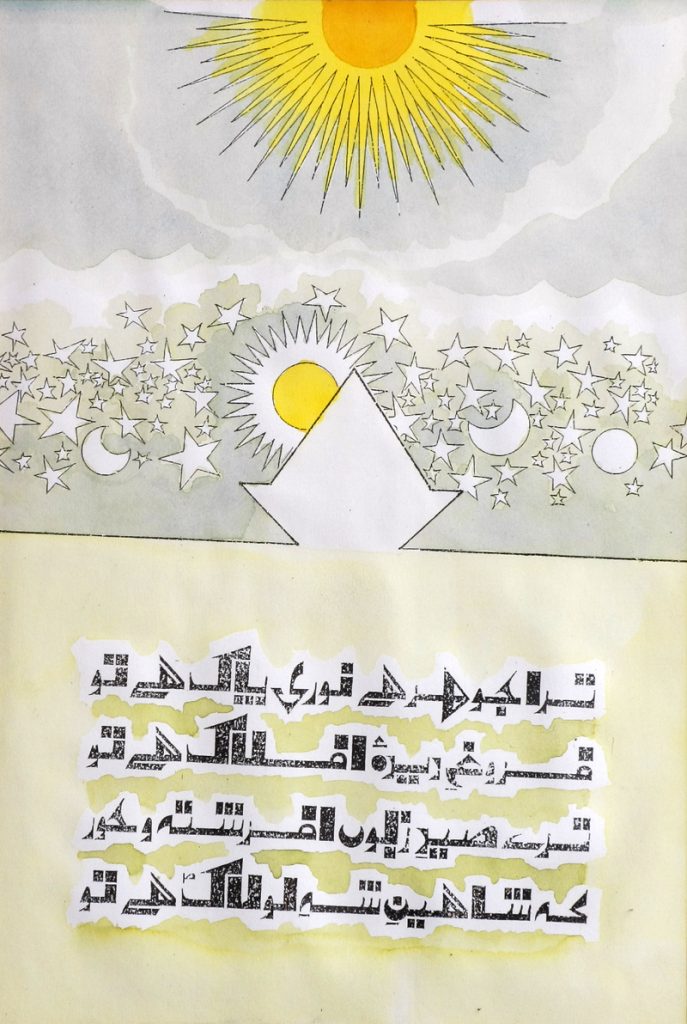 ترا جوھر ھے نوری پاک ھے تو
فروغِ دیدۂ افلاک ھے تو
ترے صیدِ زبوں افرشتہ و حور
کہ شاھینِ شہِ لولاک ھے تو